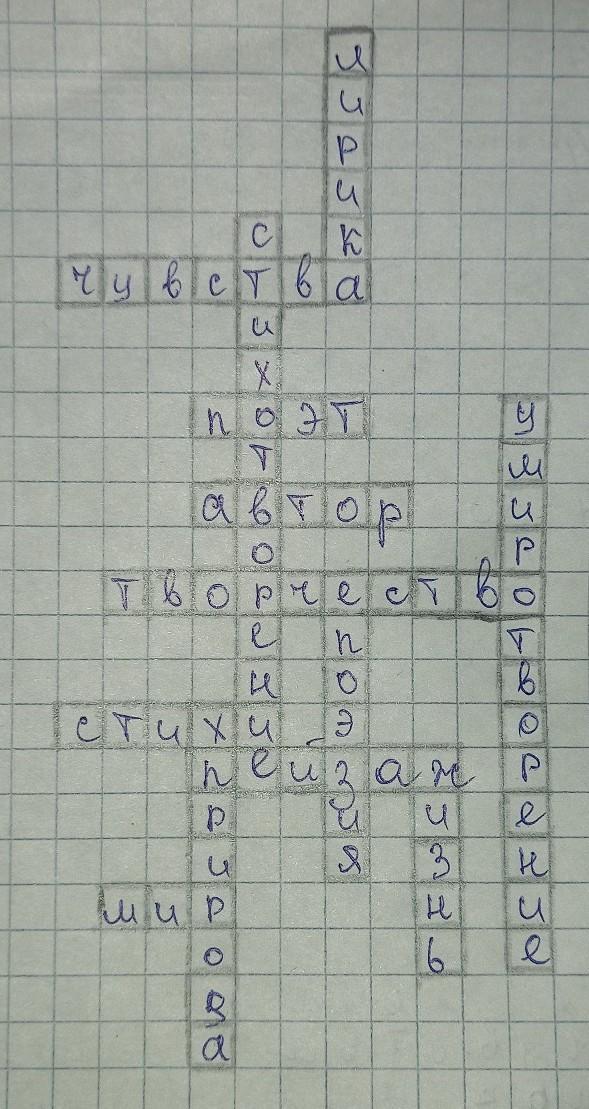 лирика
стихотворение
чувства
поэт
умиротворение
автор
творчество
поэзия
стихи
пейзаж
природа
жизнь
мир